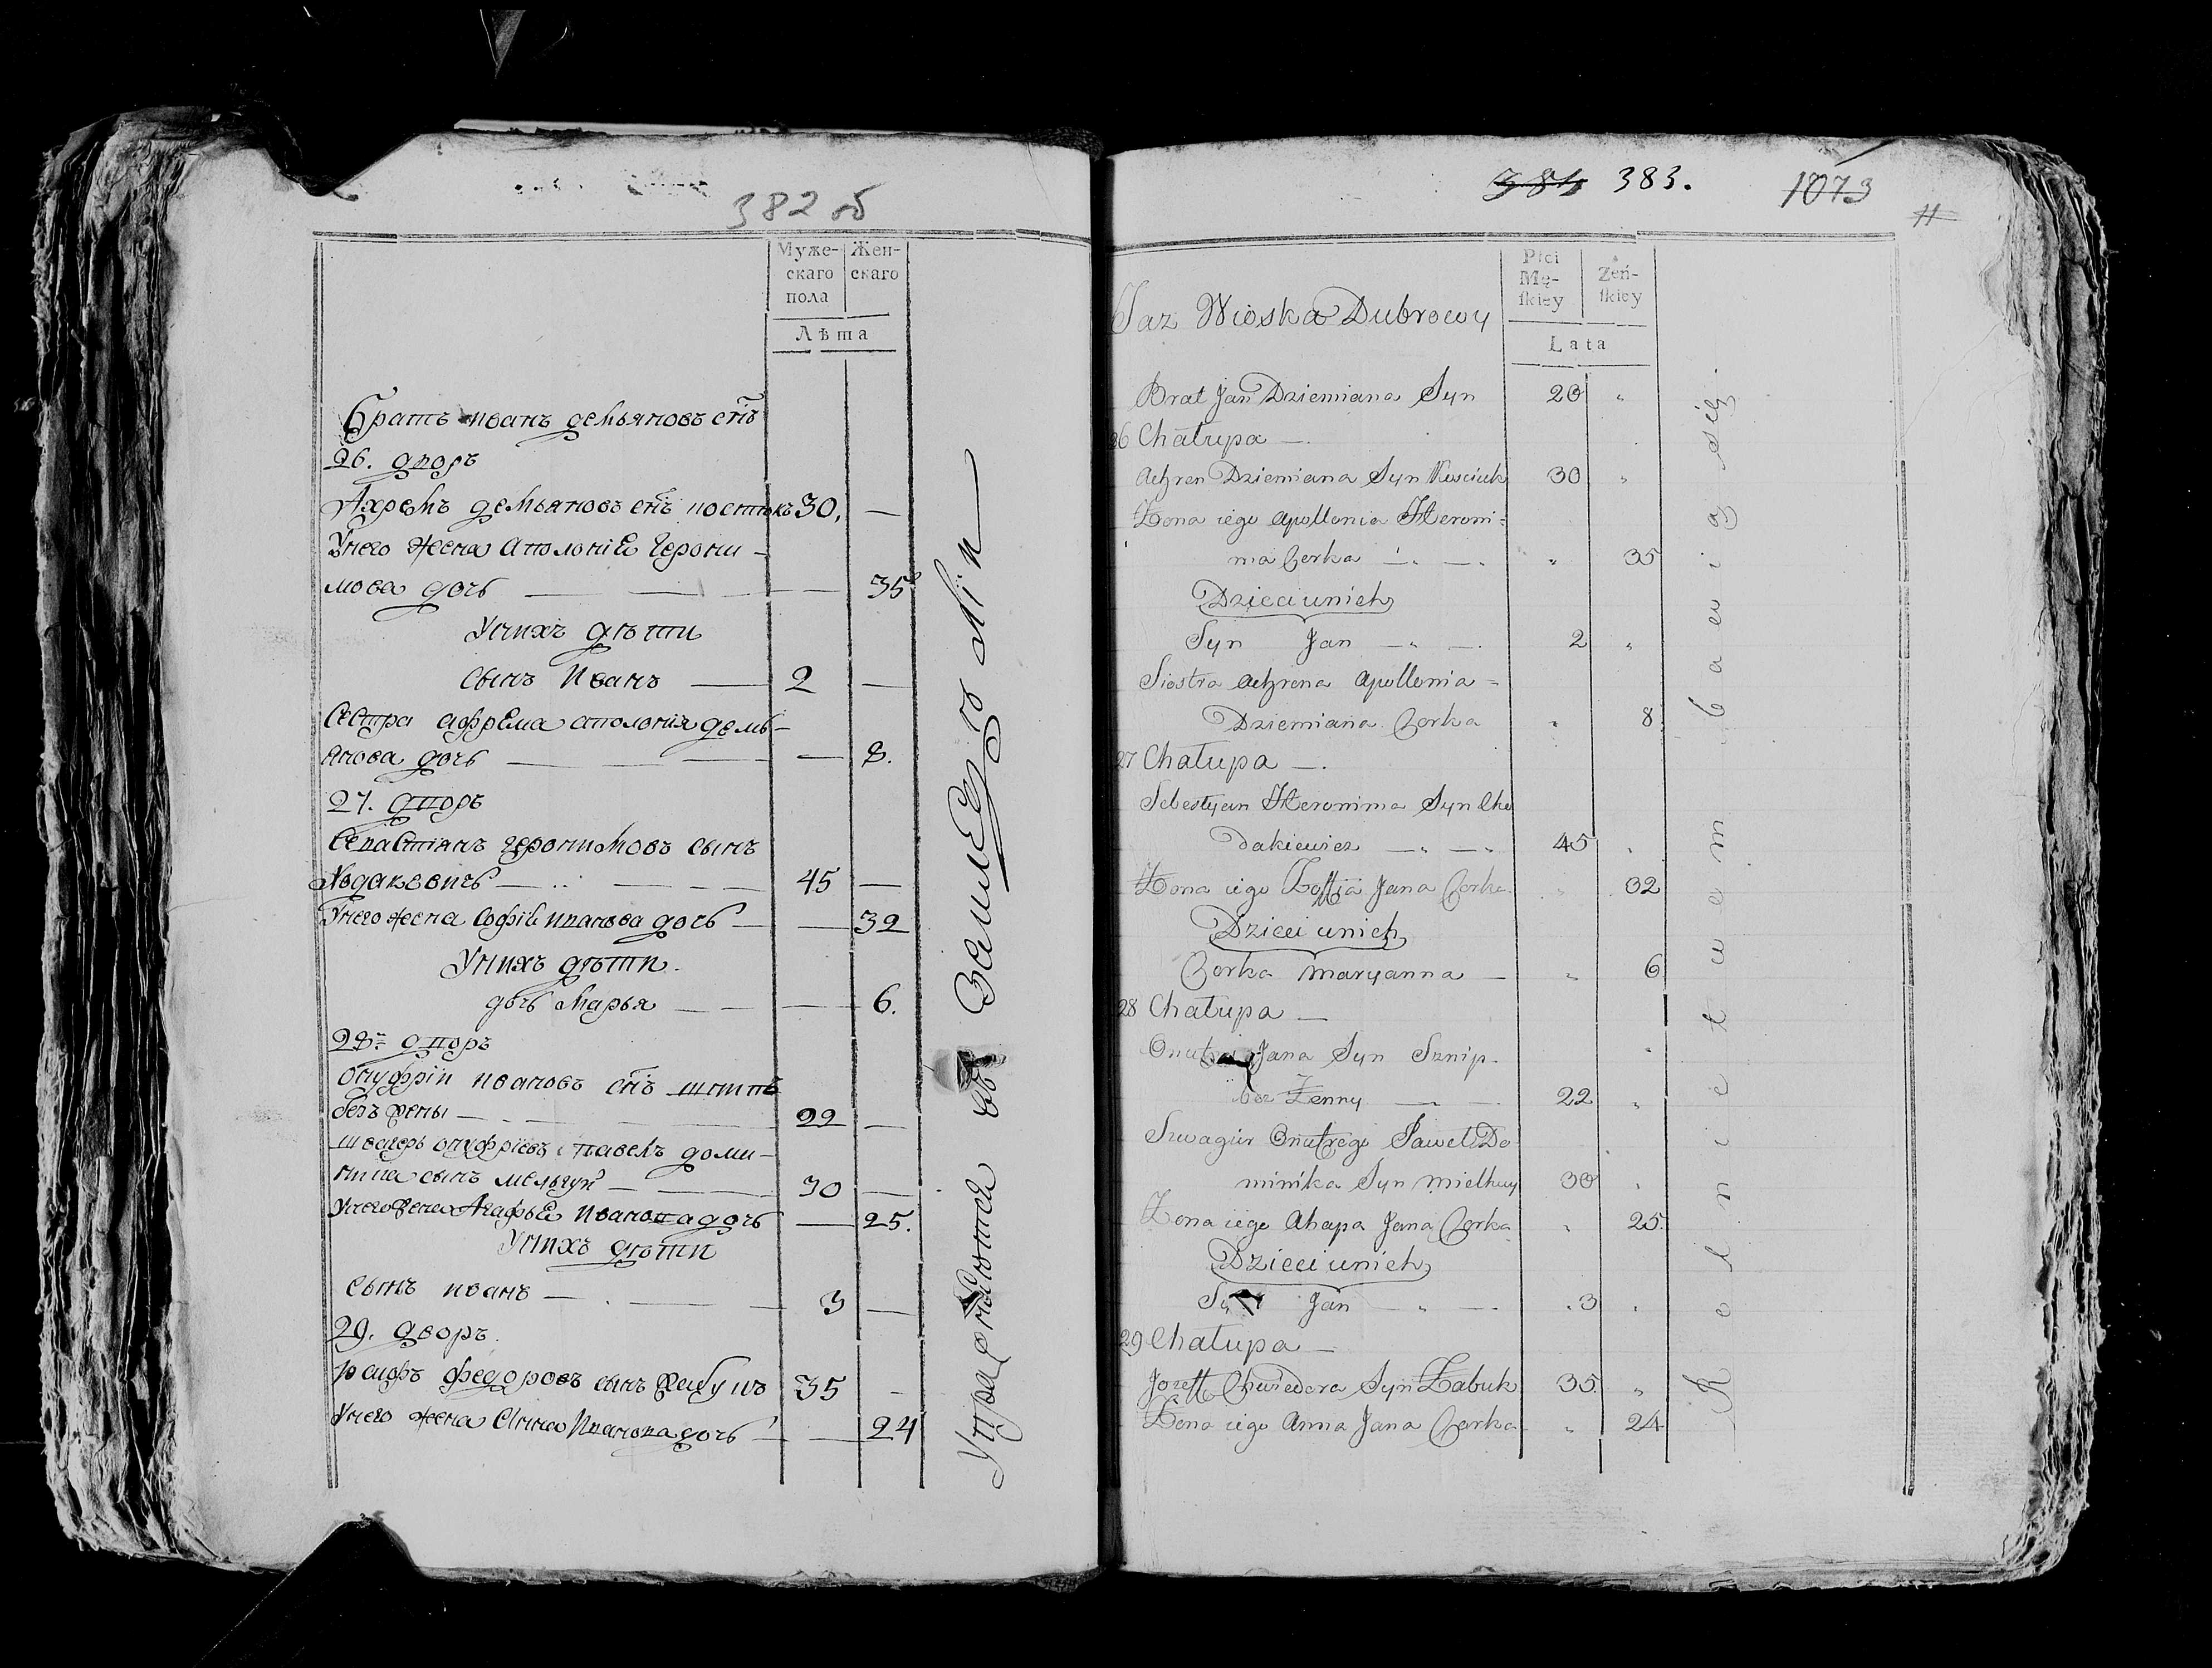 382 об
Муже-
скаго
пола
Жен-
скаго
Лѣта
Братъ иванъ демьяновъ снъ
26. дворъ
Ахремъ демьяновъ снъ 30. —
Унего жена аполонiя Герони-
мова дочь — 35
Унихъ дѣти
сынъ Иванъ — 2 —
Сестра афрема аполонiя демь-
янова дочь — 8.
27. дворъ
Себастiянъ геронимовъ сынъ
Ходакевичь — 45 —
Унего жена Софiя иванова дочь — 32
Унихъ дѣти.
дочь Марья — 6.
28. дворъ
Онуфрiи ивановъ снъ шнипъ
безъ жены — 22 —
швагеръ онуфрiевъ павелъ доми-
ника сынъ мелгуй — 30 —
Унего жена Агафья Иванова дочь — 25.
Унихъ дѣти
сынъ иванъ — 3 —
29. дворъ
федоровъ сынъ жабукъ 35 -
Унего жена Анна Иванова дочь — 24
въ Земледелiи
383. 1073
11
Płci
Mę-
skiey
Żeń-
skiey
Lata
Taz Wioska Dubrowy
Brat Jan Dziemiana Syn 20 "
26 Chałupa —.
Achren Dziemiana Syn Kusciuk 30 "
Żona iego Apollonia Heroni=
ma Corka — " 35
Dzieci unich
Syn Jan — 2 "
Siostra Achrena Apollonia =
Dziemiana Corka " 8
27 Chałupa —.
Sebestyan Heronima Syn Cho
dakiewicz — 45 "
Żona iego Zoffia Jana Corka " 32
Dzieci unich
Corka Maryanna — " 6
28 Chałupa —
Jana Syn Sznip-
bez Zenny — 22 "
Szwagier Onufrego Paweł Do
minika Syn Mielhuy 30 "
Żona iego Ahapa Jana Corka " 25.
Dzieci unich
Syn Jan — 3 "
29 Chałupa —
Jozeff Chwiedora Syn Żabuk 35 "
Żona iego Anna Jana Corka " 24
Rolnictwem bawią się.